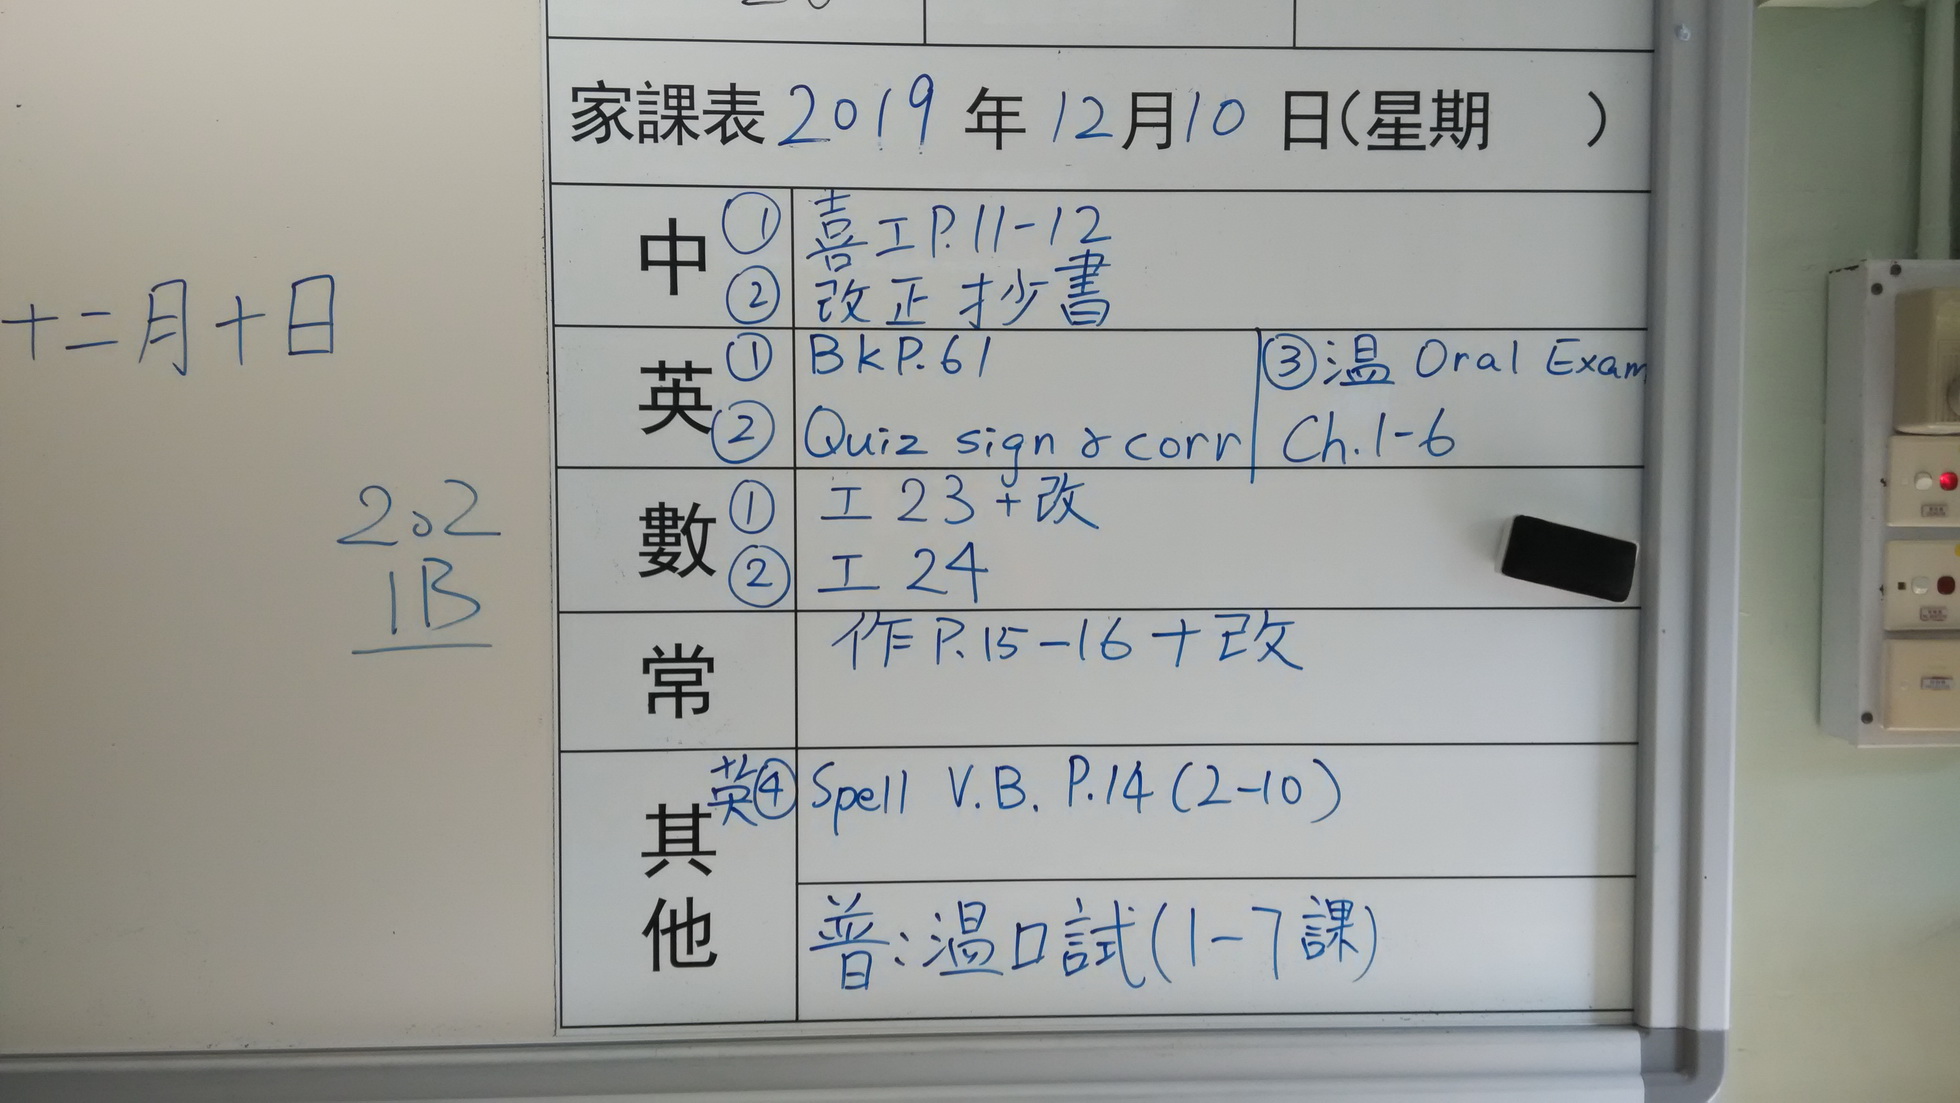 家課表 2019 年 12 月 10 日(星期 )
中 ① 喜工P.11-12
② 改正抄書
英 ① BkP.61
② Quiz sign & corr
③ 温 Oral Exam
Ch.1-6
數 ① 工 23 + 改
② 工 24
常 作 P.15-16 + 改
其他 英④ Spell V.B. P.14 (2-10)
普:温口試(1-7課)
十二月十日
202
1B